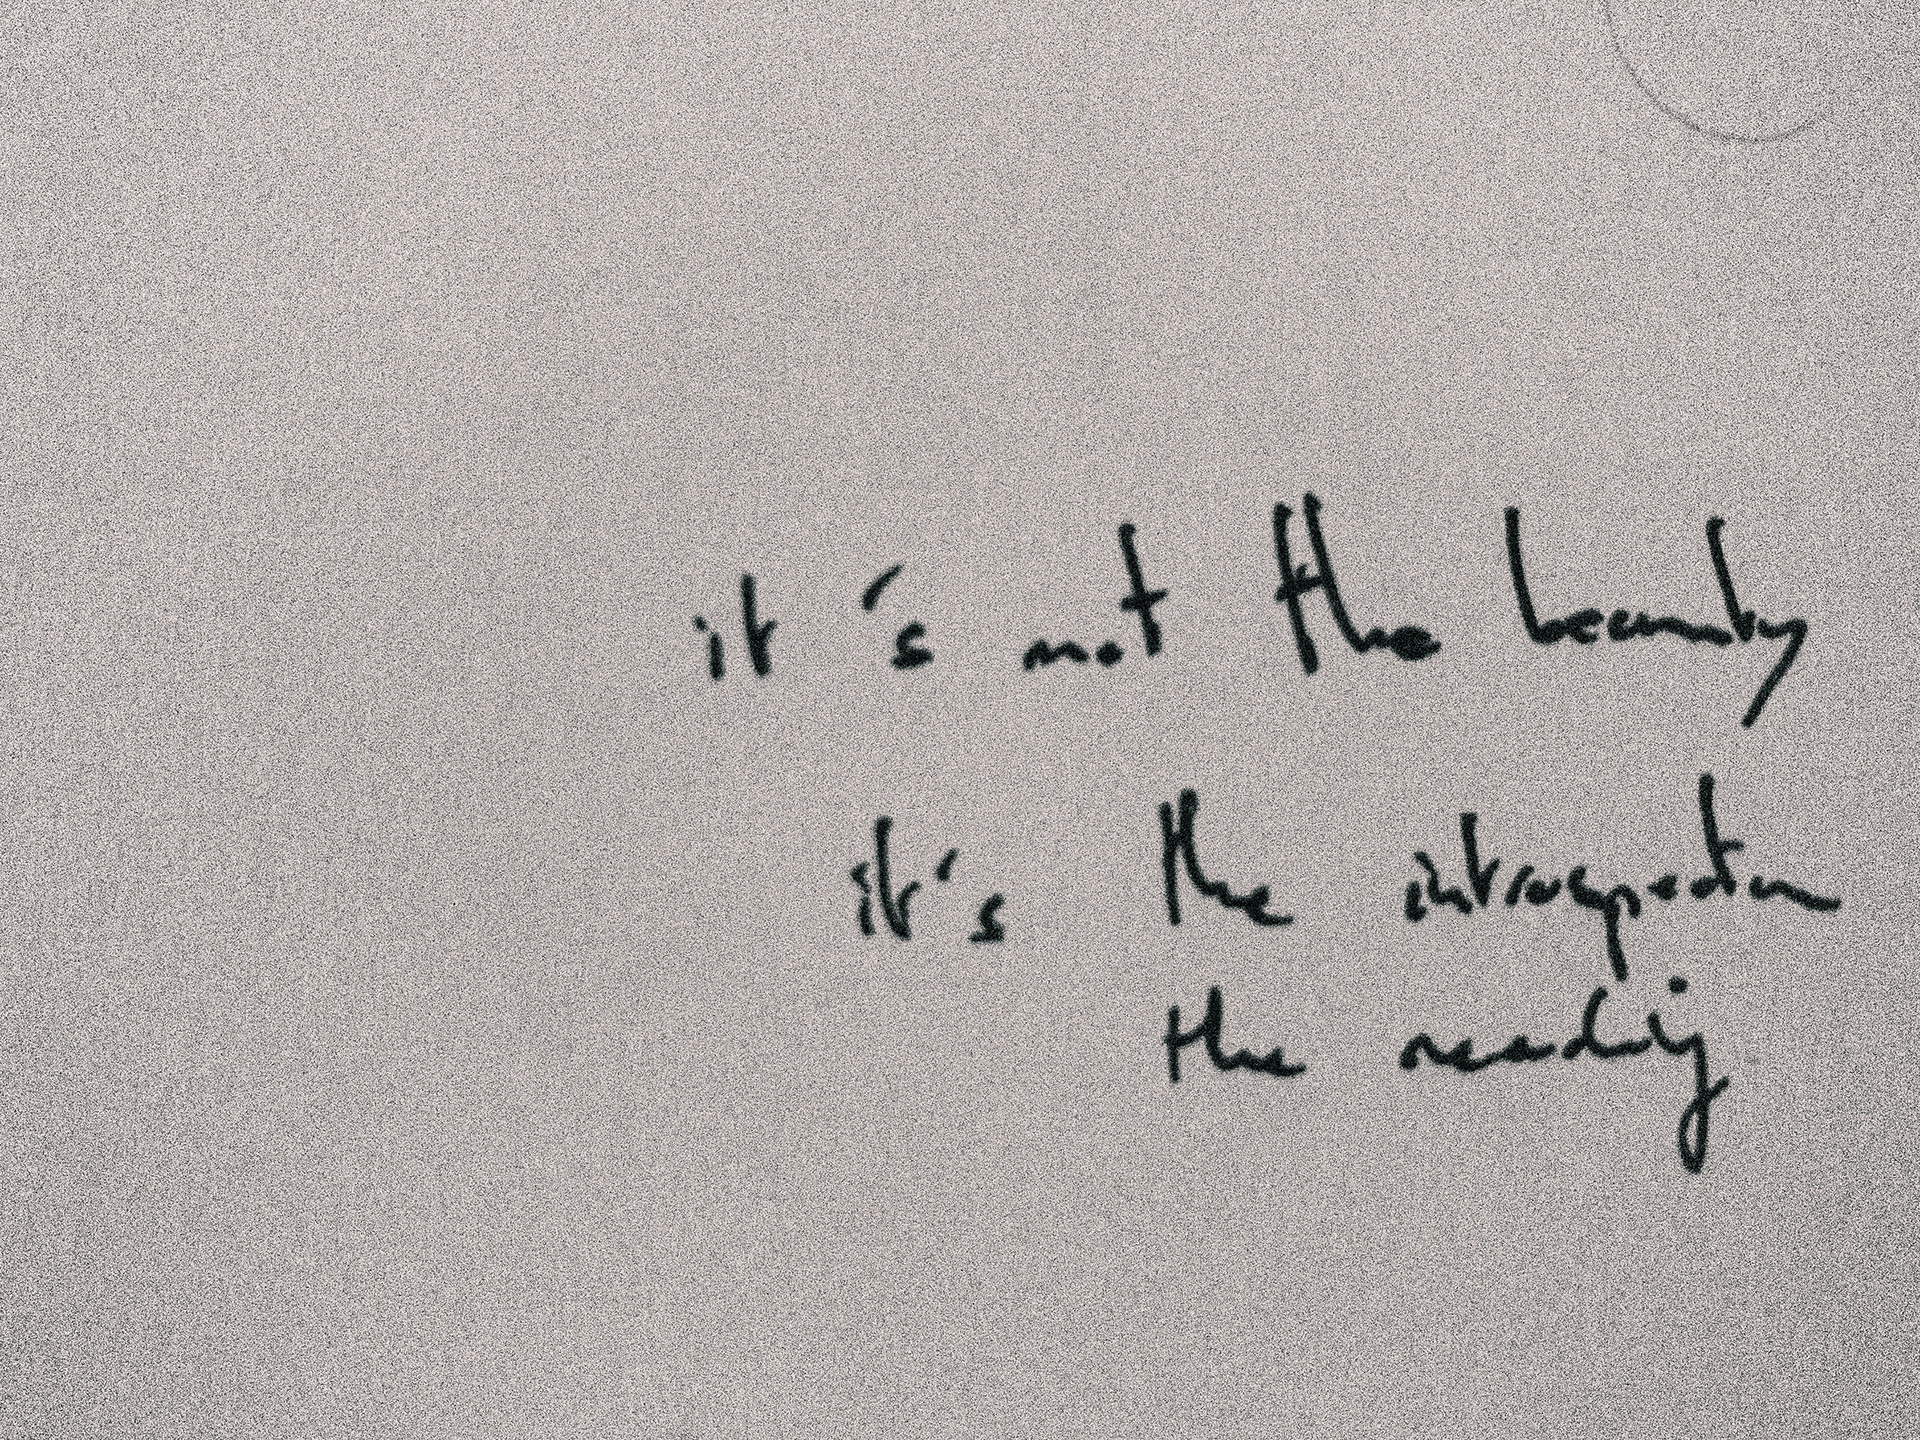 it's not the beauty
it's the introspection
the reading